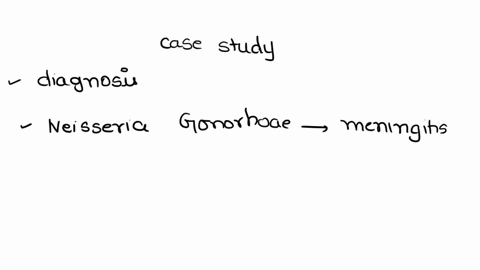 case study
✓ diagnosis
✓ Neisseria Gonorhoae → meningitis